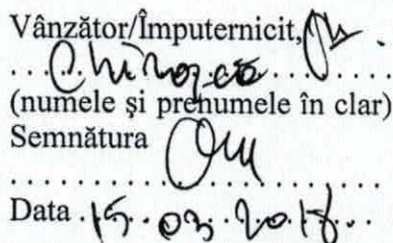 Vânzător/Împuternicit,
(numele și prenumele în clar)
Semnătura
Data 15.03.2018